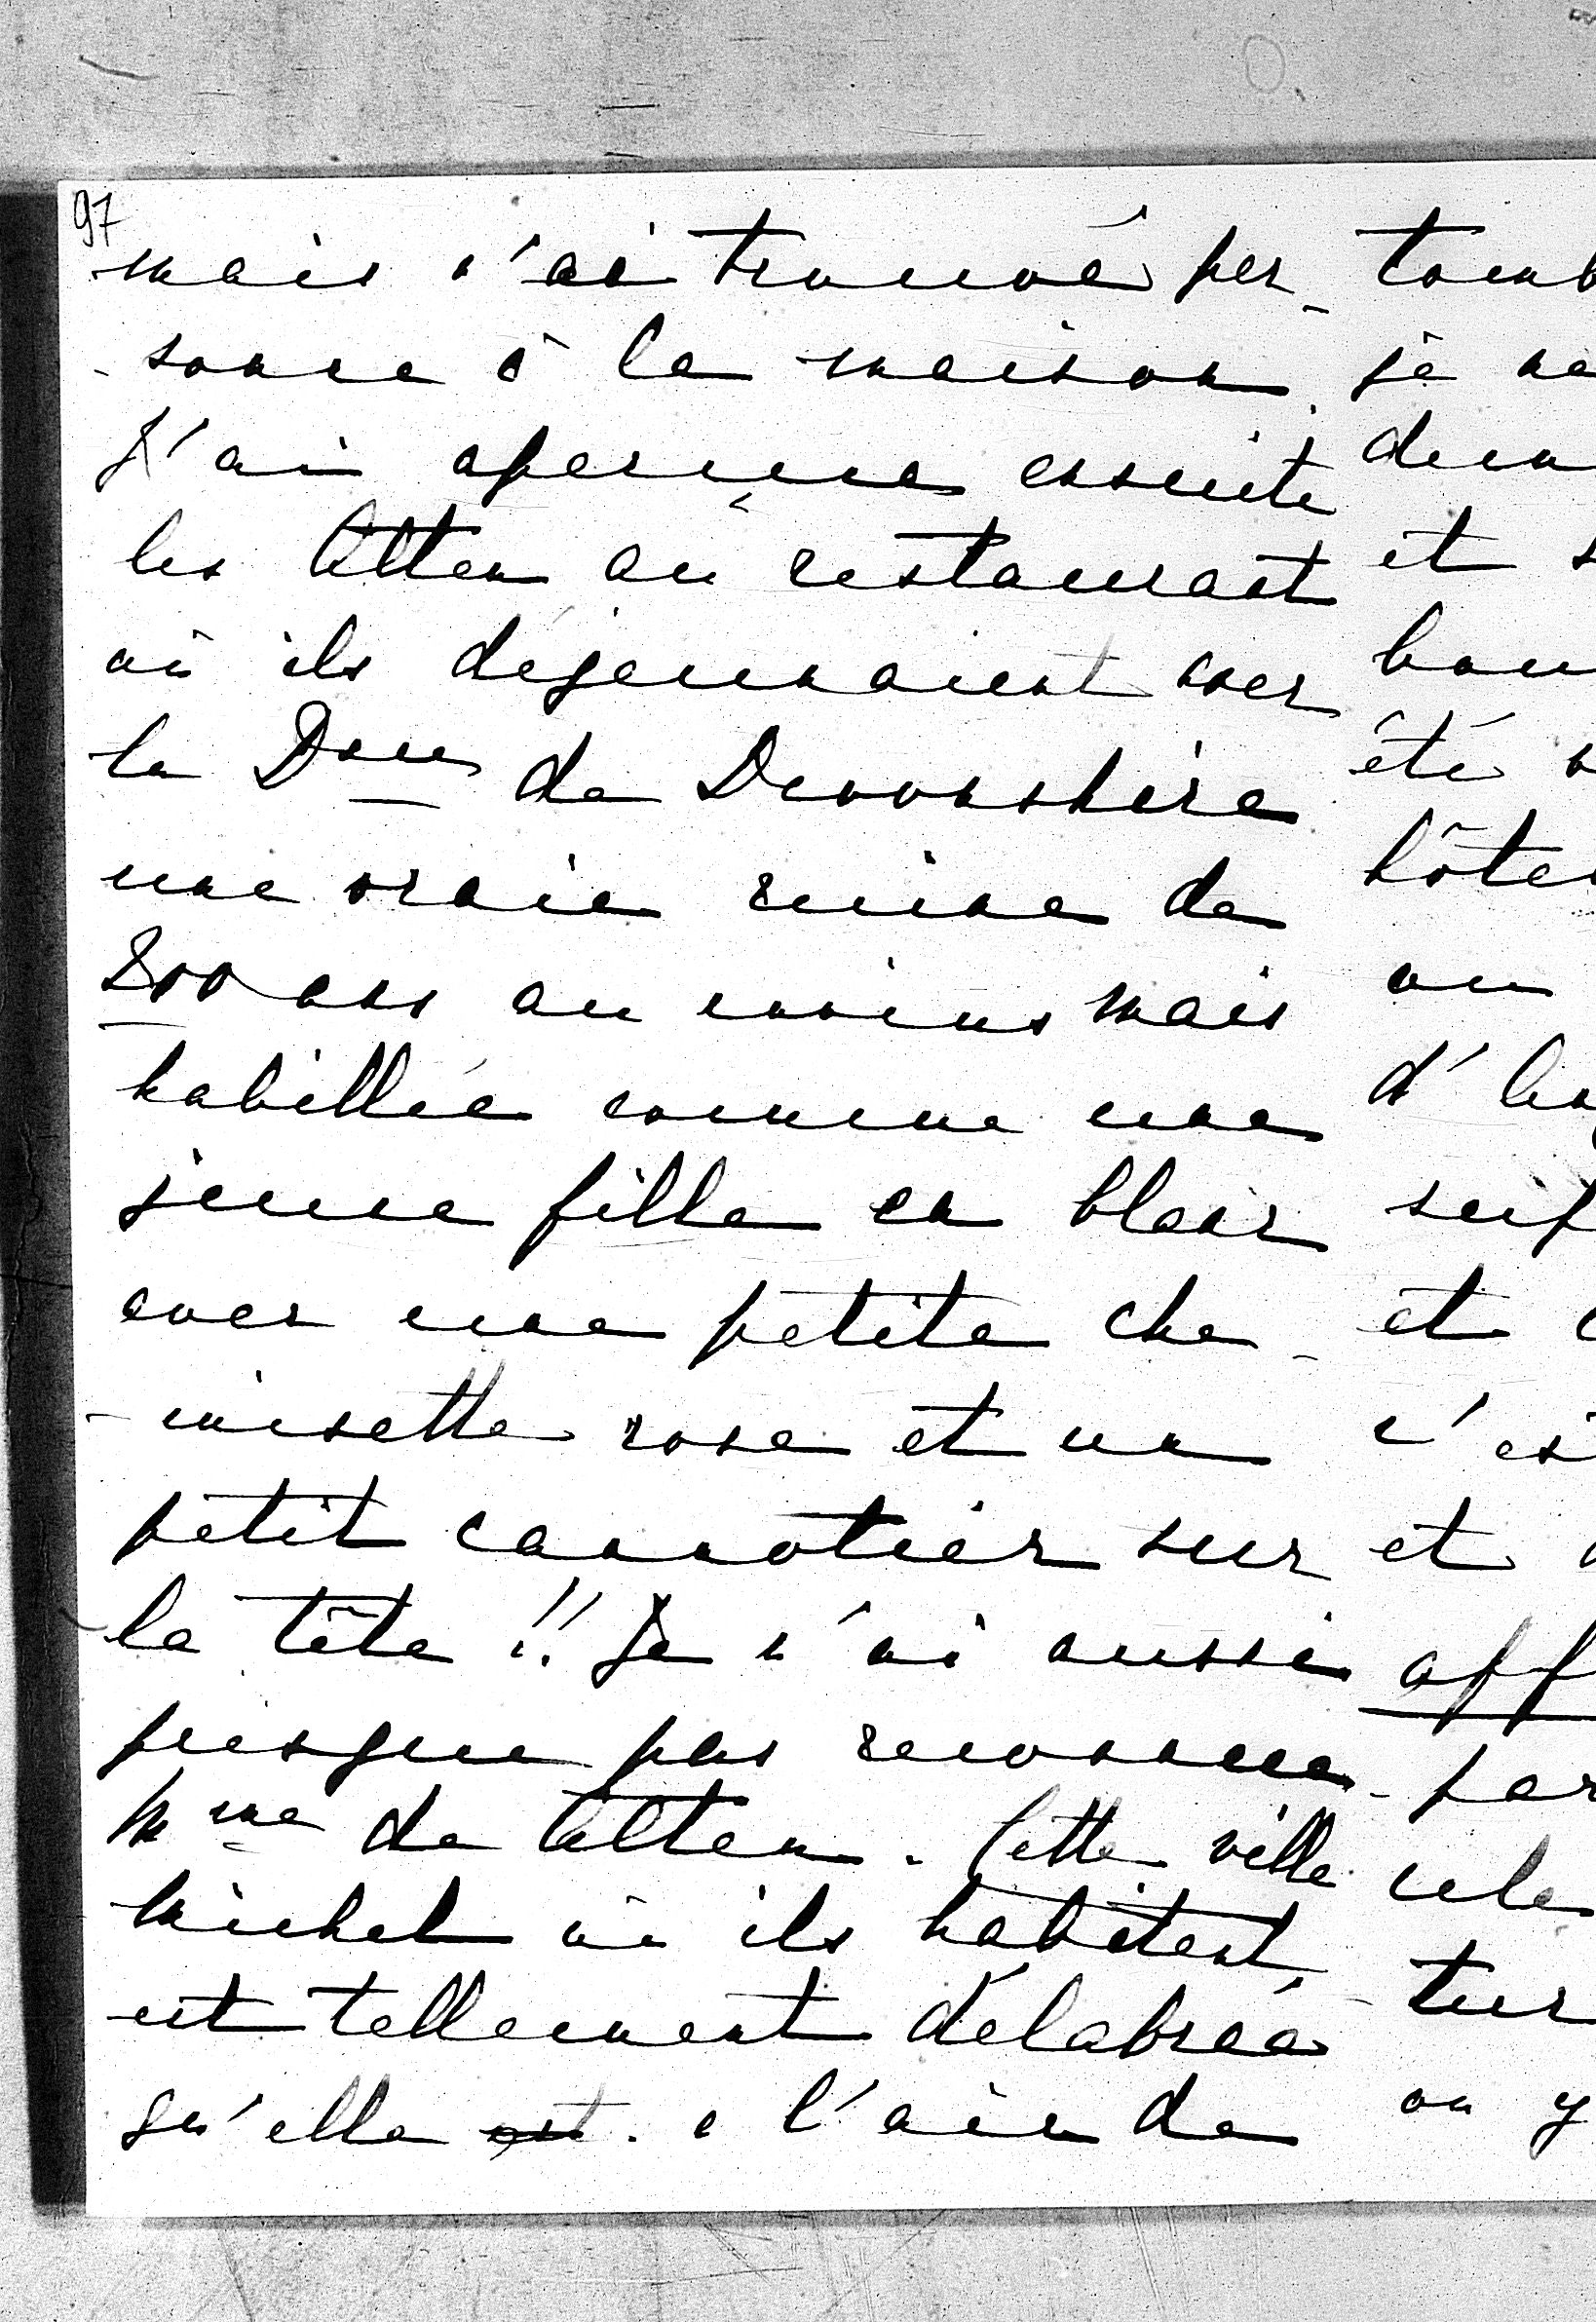 97
mais n'ai trouvé per-
-sonne à la maison.
J'ai aperçue ensuite
les Etter au restaurant
où ils déjeunaient avec
la Dsse de Devonshire
une vraie ruine de
800 ans au moins mais
habillée comme une
jeune fille en blanc
avec une petite che-
-misette rose et un
petit cannotier sur
la tête !! Je n'ai aussi
presque pas reconnue
Mme de Etter. Cette ville
Michel où ils habitent,
est tellement délabrée
qu'elle est. a l'air de
tomb
je ne
deux
et
été
hôtes
on
d'
et
c'es
et
aff
par
tur
on y